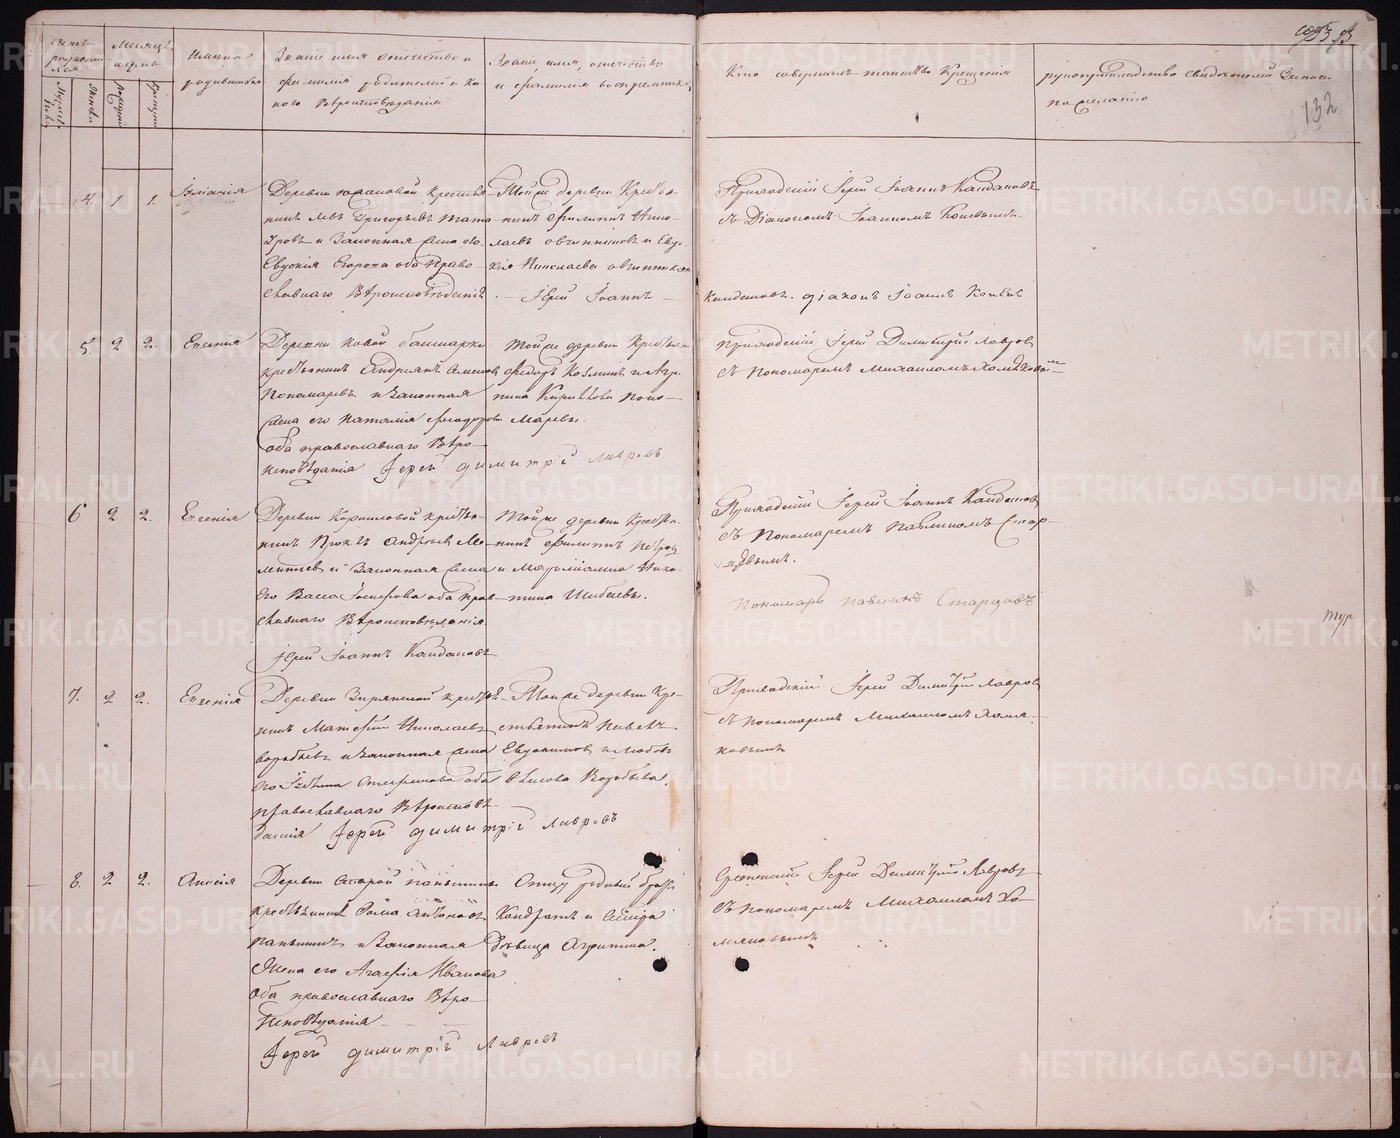 132
Счетъ родившихся
Мѣсяцъ и день
Имена родившихся
Званіе имя отчество и фамилія родителей и какого вѣроисповѣданія
Званіе, имя, отчество и фамилія воспріемниковъ
Кто совершалъ таинство Крещенія
рукоприкладство свидѣтелей записи по желанію
Женска
рожденія
Крещенія
4. 1 1.
Деревни крестья-
нинъ Левъ Григорьевъ
и Законная Жена его
Евдокія Егорова оба Право-
славнаго Вѣроисповѣданія
Той же деревни Кресть-
нинъ Филиппъ Нико-
лаевъ Овчинниковъ и Евдо-
кія Николаева Овчинникова
Іерей Іоаннъ
Приходскій Іерей Іоаннъ Кандаковъ
съ Діакономъ Іоанномъ Коневымъ.
діаконъ Іоаннъ Коневъ
5. 2 2.
Евгенія
Деревни Новой Башкарки
крестьянинъ Андреянъ Семеновъ
Пономаревъ и Законная
Жена его Наталія Феодорова
оба православнаго Вѣро-
исповѣданія Іерей Димитрій Лавровъ
Той же деревни Крестьян
Федоръ Козминъ и Агри-
пина Кирилова Поно-
маревы.
Приходскій Іерей Димитрій Лавровъ
съ Пономаремъ Михаиломъ Хомяковы-
мъ
6 2 2.
Евгенія
Деревни Корниловой крестья-
нинъ Проклъ Андреевъ Ме-
лентьевъ и Законная Жена
его Васса Іосифова оба Прав-
славнаго Вѣроисповѣданія
Іерей Іоаннъ Кандаковъ
Той же деревни Крестьян-
нинъ Филиппъ Петровъ
и Маремиана Ники-
тина Шибаевы.
Приходскій Іерей Іоаннъ Кандаковъ
съ Пономаремъ Павлиномъ Стар-
цовымъ.
Пономарь Павлинъ Старцовъ
7. 2 2.
Евгенія
Деревни Зырянской крестья-
нинъ Матвей Николаевъ
Воробьевъ и Законная Жена
его Стефанова оба
православнаго Вѣроисповѣ-
данія Іерей Димитрій Лавровъ
Той же деревни Кре-
стьянинъ Павелъ
Евдокимовъ и Любовь
Власова Воробьева.
Приходскій Іерей Димитрій Лавровъ
съ пономаремъ Михаиломъ Хомя-
ковымъ
8. 2 2.
Анисія
Деревни Старой Паньшины
крестьянинъ Савва Антоновъ
Паньшинъ и Законная
Жена его Агафія Иванова
Оба православнаго Вѣро-
исповѣданія
Іерей Димитрій Лавровъ
Отцу родной братъ
Кондратъ и Сестра
Дѣвица Агрипина.
Іерей Димитрій Лавровъ
съ пономаремъ Михаиломъ Хо-
мяковымъ
METRIKI.GASO-URAL.RU